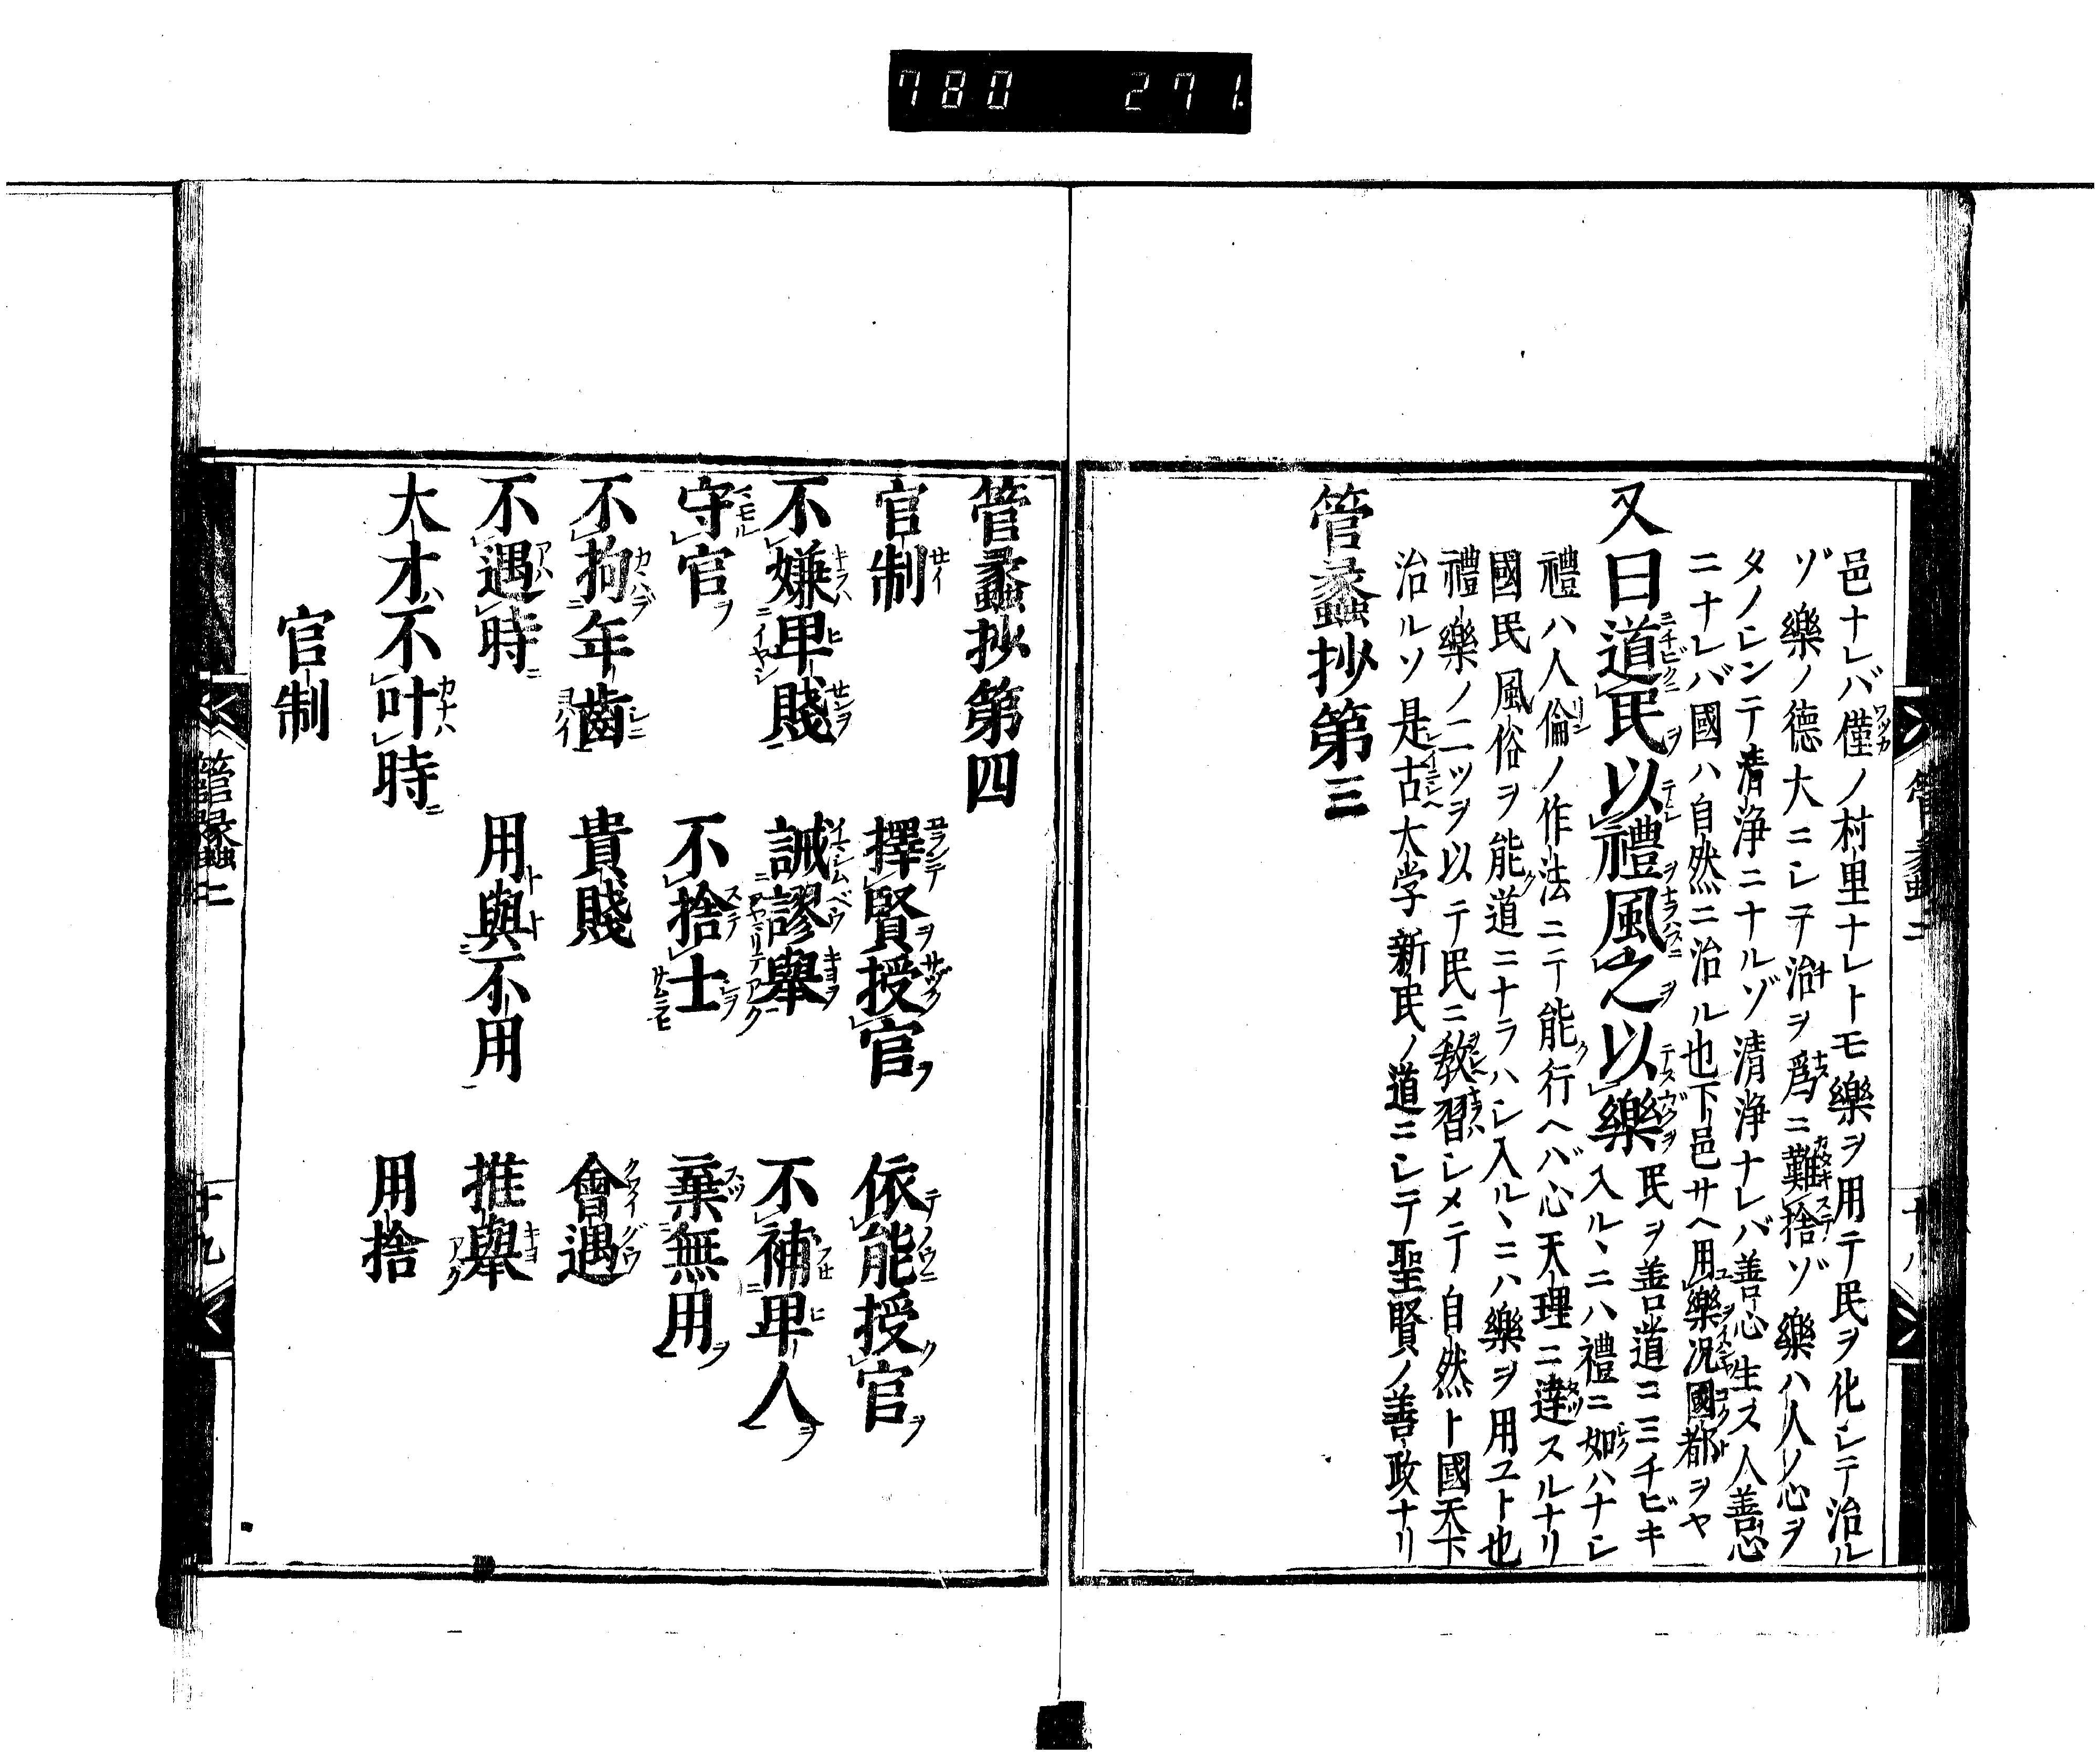 780 271
邑ナレバ僅ノ村里ナレトモ樂ヲ用テ民ヲ化シテ治ル
ゾ樂ノ德大ニシテ治ヲ爲ニ難捨ゾ樂ハ人ノ心ヲ
タノシンテ清浄ニナルゾ清浄ナレバ善心生ス人善心
ニナレバ國ハ自然ニ治ル也下邑サヘ用樂况國都ヲヤ
又曰道民以禮風之以樂 民ヲ善道ニミチビキ
入ル丶ニハ禮ニ如ハナシ
禮ハ人倫ノ作法ニテ能行ヘバ心天理ニ達スルナリ
國民風俗ヲ能道ニナラハシ入ル丶ニハ樂ヲ用ユト也
禮樂ノ二ツヲ以テ民ニ教習シメテ自然ト國天下
治ルソ是古大学新民ノ道ニシテ聖賢ノ善政ナリ
管蠡抄第三
管蠡抄第四
官制 擇賢授官 依能授官
不嫌卑賤 誡謬舉 不補卑人
守官 不捨士 棄無用
不拘年齒 貴賤 會遇
不遇時 用與不用 推舉
大才不叶時 用捨
官制
管蠡二 十九